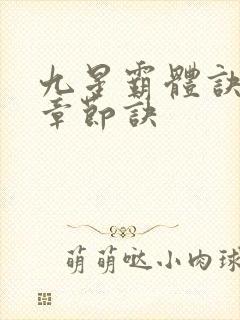 九星霸體訣
章節訣
萌萌哒小肉球